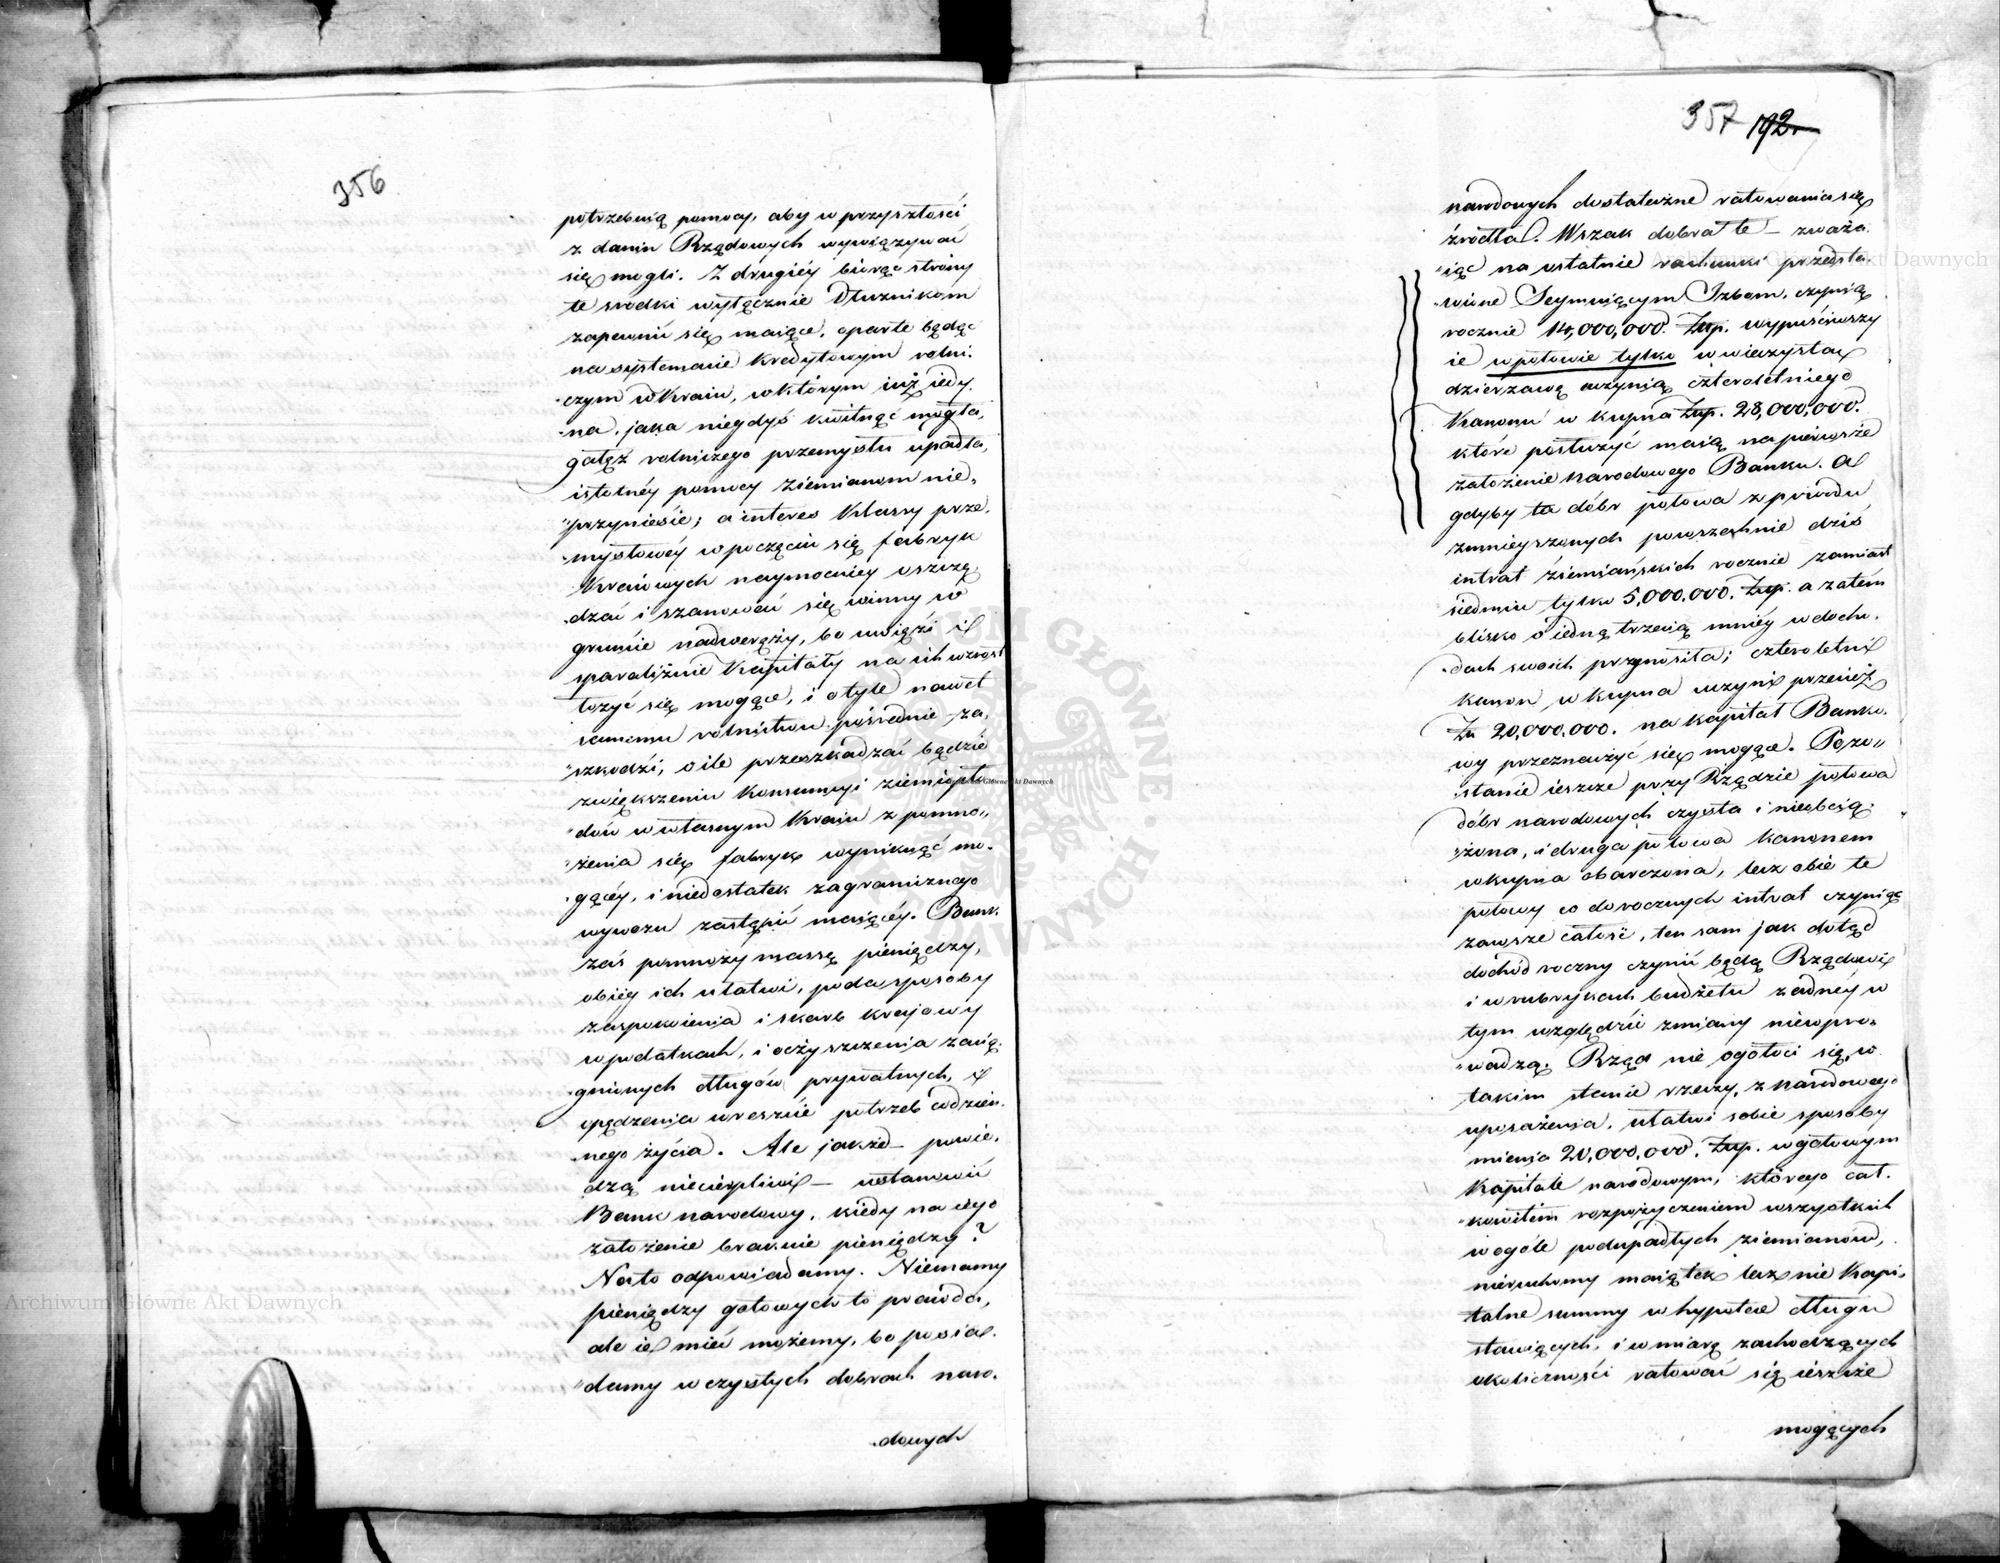 356
potrzebuią pomocy, aby w przyszłości
z danin Rządowych wywiązywać
się mogli. Z drugiéy biorąc strony
te srodki wyłącznie Dłuznikom
zapewnić się maiące, oparte będąc
na systemacie kredytowym rolni-
czym w Kraiu, w którym iuż iedy-
na, jaka niegdyś kwitnąć mogła,
gałęź rolniczego przemysłu upadła,
istotnéy pomocy ziemianom nie
przyniesie; a interes klassy prze-
mysłowéy w poczęciu się fabryk
Kraiowych naymocniey oszczę-
dzać i szanować się winny w
gruncie nadweręży, bo uwięzi i
sparaliżuie kapitały na ich wzrost
łożyć się mogące, i o tyle nawet
samemu rolnictwu pośrednie za-
szkodzi, o ile przeszkadzać będzie
zwiększeniu konsumcyi ziemiopło-
dów w własnym Kraiu z pomno-
żenia się fabryk wyniknąć mo-
gącéy, i niedostatek zagranicznego
wywozu zastąpić maiącéy. Bank
zaś pomnoży massę pieniędzy,
obiég ich ułatwi, poda sposoby
zaspokoienia i skarb krajowy
w podatkach, i oczyszczenia zacią-
gnionych długów prywatnych, i
opędzenia wreszcie potrzeb codzien-
nego życia. Ale jakże – powie-
dzą niecierpliwi – ustanowić
Bank narodowy, kiedy na iego
założenie braknie pieniędzy?
Na to odpowiadamy. Niemamy
pieniędzy gotowych to prawda,
ale ie mieć możemy, bo posia-
damy w czystych dobrach naro-
dowych
357 192.
narodowych dostateczne ratowania się
źrodła. Wszak dobra te – zważa-
iąc na ostatnie rachunki przedsta-
wione Seymuiącym Izbom, czynią
rocznie 14,000,000. Złp. wypuściwszy
ie w połowie tylko w wieczystą
dzierżawę uczynią czteroletniego
Kanonu w kupna Złp. 28,000,000.
które posłużyć maią na pierwsze
założenie Narodowego Banku. A
gdyby ta dóbr połowa z powodu
zmnieyszonych powszechnie dziś
intrat ziemiańskich rocznie zamiast
siedmiu tylko 5,000,000. Złp. a zatém
blisko o iedną trzecią mniéy w docho-
dach swoich przynosiła; czteroletni
kanon w kupna uczyni przecież
Zł. 20,000,000. na kapitał Banko-
wy przeznaczyć się mogące. Pozo-
stanie ieszcze przy Rządzie połowa
dóbr narodowych czysta i nieobcią-
żona, i druga połowa kanonem
wkupna obarczona, lecz obie te
połowy co do rocznych intrat czyniąc
zawsze całość, ten sam jak dotąd
dochód roczny czynić będą Rządowi
i w rubrykach budżetu żadnéy w
tym względzie zmiany niewpro-
wadzą. Rząd nie ogołoci się, w
takim stanie rzeczy, z narodowego
uposażenia, ułatwi sobie sposoby
mienia 20,000,000. Złp. w gotowym
Kapitale narodowym, którego cał-
kowitém rozpożyczeniem wszystkich
w ogóle podupadłych ziemianów,
nieruchomy maiątek lecz nie kapi-
talne summy w hypotece długu
stawiących, i w miarę zachodzących
okoliczności ratować się ieszcze
mogących
Archiwum Główne Akt Dawnych
Archiwum Główne Akt Dawnych
Archiwum Główne Akt Dawnych